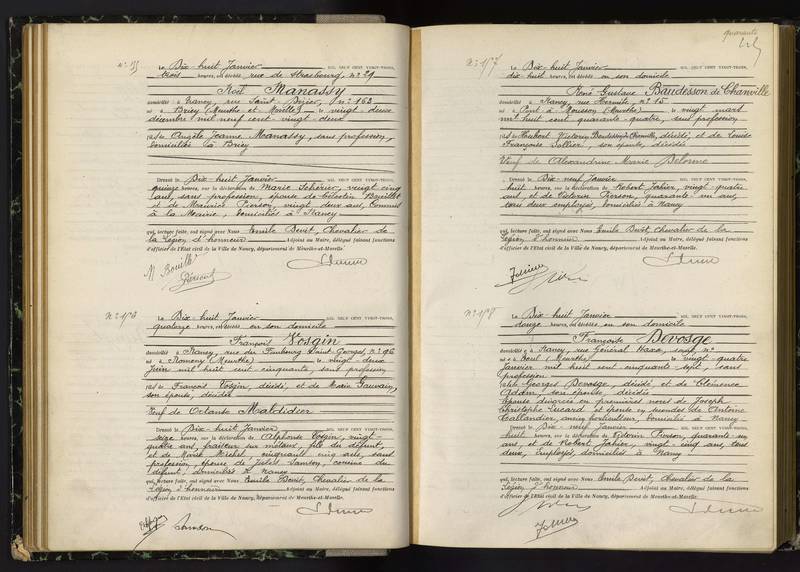 Le Dix-huit Janvier MIL NEUF CENT VINGT-TROIS,
trois heures, est décédé rue de Strasbourg, n° 29
Noël Manassy
domicilié à Nancy, rue Saint-Dizier, n° 162
né à Briey (Meurthe et Moselle), le vingt-deux
décembre mil neuf cent vingt-deux
fils de Angèle Jeanne Manassy, sans profession,
domiciliée à Briey
Dressé le Dix-huit Janvier MIL NEUF CENT VINGT-TROIS,
quinze heures, sur la déclaration de Marie Schérier, vingt cinq
ans, sans profession, épouse de Célestin Bouillet
et de Maurice Pierson, vingt deux ans, Commis
à la Mairie, domiciliés à Nancy
qui, lecture faite, ont signé avec Nous Emile Devit, Chevalier de
la Légion d'honneur Adjoint au Maire, délégué faisant fonctions
d'officier de l'Etat civil de la Ville de Nancy, département de Meurthe-et-Moselle.
M Bouillet
Pierson
Le Dix-huit Janvier MIL NEUF CENT VINGT-TROIS,
quatorze heures, est décédé en son domicile
François Vosgin
domicilié à Nancy, rue du Faubourg Saint Georges, n° 96
né à Romény (Meurthe) le vingt-deux
Juin mil huit cent cinquante, sans profession
fils de François Vosgin, décédé, et de Marie Gauvain,
son épouse, décédée
Veuf de Octavie Maldidier
Dressé le Dix-huit Janvier MIL NEUF CENT VINGT-TROIS,
seize heures, sur la déclaration de Alphonse Vosgin, vingt-
quatre ans, traiteur sur métaux, fils du défunt,
et de Marie Michel, cinquante cinq ans, sans
profession, épouse de Jules Samson, cousine du
défunt, domiciliés à Nancy
qui, lecture faite, ont signé avec Nous Emile Devit, Chevalier de la
Légion d'honneur Adjoint au Maire, délégué faisant fonctions
d'officier de l'Etat civil de la Ville de Nancy, département de Meurthe-et-Moselle.
Samson
quarante
N° 157
Le Dix-huit Janvier MIL NEUF CENT VINGT-TROIS,
dix huit heures, est décédé en son domicile
René Gustave Baudesson de Chanville
domicilié à Nancy, rue Hermite, n° 15
né à Pont à Mousson (Meurthe) le vingt mars
mil huit cent quarante-quatre, sans profession
fils de Hubert Victor Baudesson de Chanville, décédé, et de Louise
Françoise Sollier, son épouse, décédée
Veuf de Alexandrine Marie Delorme
Dressé le Dix-neuf Janvier MIL NEUF CENT VINGT-TROIS,
huit heures, sur la déclaration de Robert Jahier, vingt quatre
ans, et de Victorin Pierson, quarante-un ans,
tous deux employés, domiciliés à Nancy
qui, lecture faite, ont signé avec Nous Emile Devit, Chevalier de la
Légion d'honneur Adjoint au Maire, délégué faisant fonctions
d'officier de l'Etat civil de la Ville de Nancy, département de Meurthe-et-Moselle.
N° 158
Le Dix-huit Janvier MIL NEUF CENT VINGT-TROIS,
douze heures, est décédée en son domicile
Françoise Devosge
domiciliée à Nancy, rue Général Haxo, sans n°
née à Toul (Meurthe) le vingt-quatre
Janvier mil huit cent cinquante sept, sans
profession
fille Georges Devosge, décédé et de Clémence
Adam, son épouse, décédée
Epouse divorcée en premières noces de Joseph
Christophe Lucard et épouse en secondes de Antoine
Callandier, ancien horticulteur, domicilié à Nancy
Dressé le Dix-neuf Janvier MIL NEUF CENT VINGT-TROIS,
huit heures, sur la déclaration de Victorin Pierson, quarante-un
ans, et de Robert Jahier, vingt-cinq ans, tous
deux, Employés, domiciliés à Nancy
qui, lecture faite, ont signé avec Nous Emile Devit, Chevalier de la
Légion d'honneur Adjoint au Maire, délégué faisant fonctions
d'officier de l'Etat civil de la Ville de Nancy, département de Meurthe-et-Moselle.